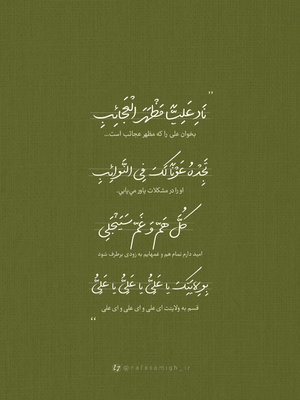 "
نَادِ عَلِیّاً مَظْهَرَ الْعَجَائِبِ
بخوان علی را که مظهر عجائب است...
تَجِدْهُ عَوْناً لَکَ فِی النَّوائِبِ
او را در مشکلات یاور می‌یابی.
کُلُّ هَمٍّ وَ غَمٍّ سَیَنْجَلِی
امید دارم تمام هم و غمهایم به زودی برطرف شود
بِوِلایَتِکَ یا عَلِیُّ یا عَلِیُّ یا عَلِیُّ
قسم به ولایتت ای علی و ای علی و ای علی
"
@rafeeamigh_ir